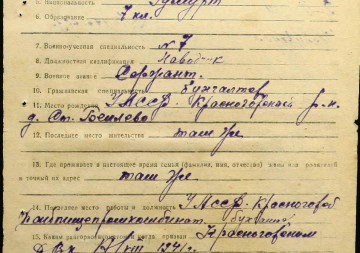 5. Национальность Удмурт
6. Образование 7 кл.
7. Военно-учетная специальность № 7
8. Должностная квалификация Наводчик
9. Военное звание Сержант.
10. Гражданская специальность бухгалтер
11. Место рождения УАССР. Красногорский р-н.
д. Ст. Кочилево
12. Последнее место жительства там же
13. Где проживает в настоящее время семья (фамилия, имя, отчество) жены или родителей
и точный их адрес там же
14. Последнее место работы и должность УАССР. Красногорский
Райпищепромкомбинат. бухгалтер
15. Каким райгорвоенкоматом СССР призван Красногорским